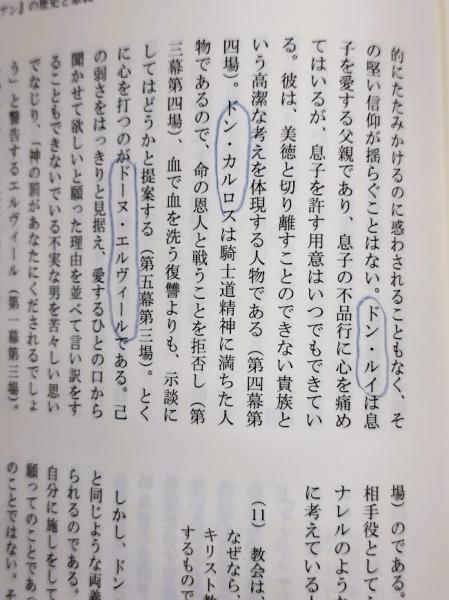 的にたたみかけるのに惑わされることもなく、そ
の堅い信仰が揺らぐことはない。ドン・ルイは息
子を愛する父親であり、息子の不品行に心を痛め
てはいるが、息子を許す用意はいつでもできてい
る。彼は、美徳と切り離すことのできない貴族と
いう高潔な考えを体現する人物である（第四幕第
四場）。ドン・カルロスは騎士道精神に満ちた人
物であるので、命の恩人と戦うことを拒否し（第
三幕第四場）、血で血を洗う復讐よりも、示談に
してはどうかと提案する（第五幕第三場）。とく
に心を打つのがドーヌ・エルヴィールである。己
の弱さをはっきりと見据え、愛するひとの口から
聞かせて欲しいと願った理由を並べて言い訳をす
ることもできないでいる不実な男を苦々しい思い
でなじり、「神の罰があなたにくだされるでしょ
う」と警告するエルヴィール（第一幕第三場）。
場）のである。
相手役として
ナレルのような
に考えている
（11）教会は、
なぜなら、
キリスト教
するもので
しかし、ドン
と同じような両義
られるのである。
自分に施しをして
願ってのことであ
のことではない。そ